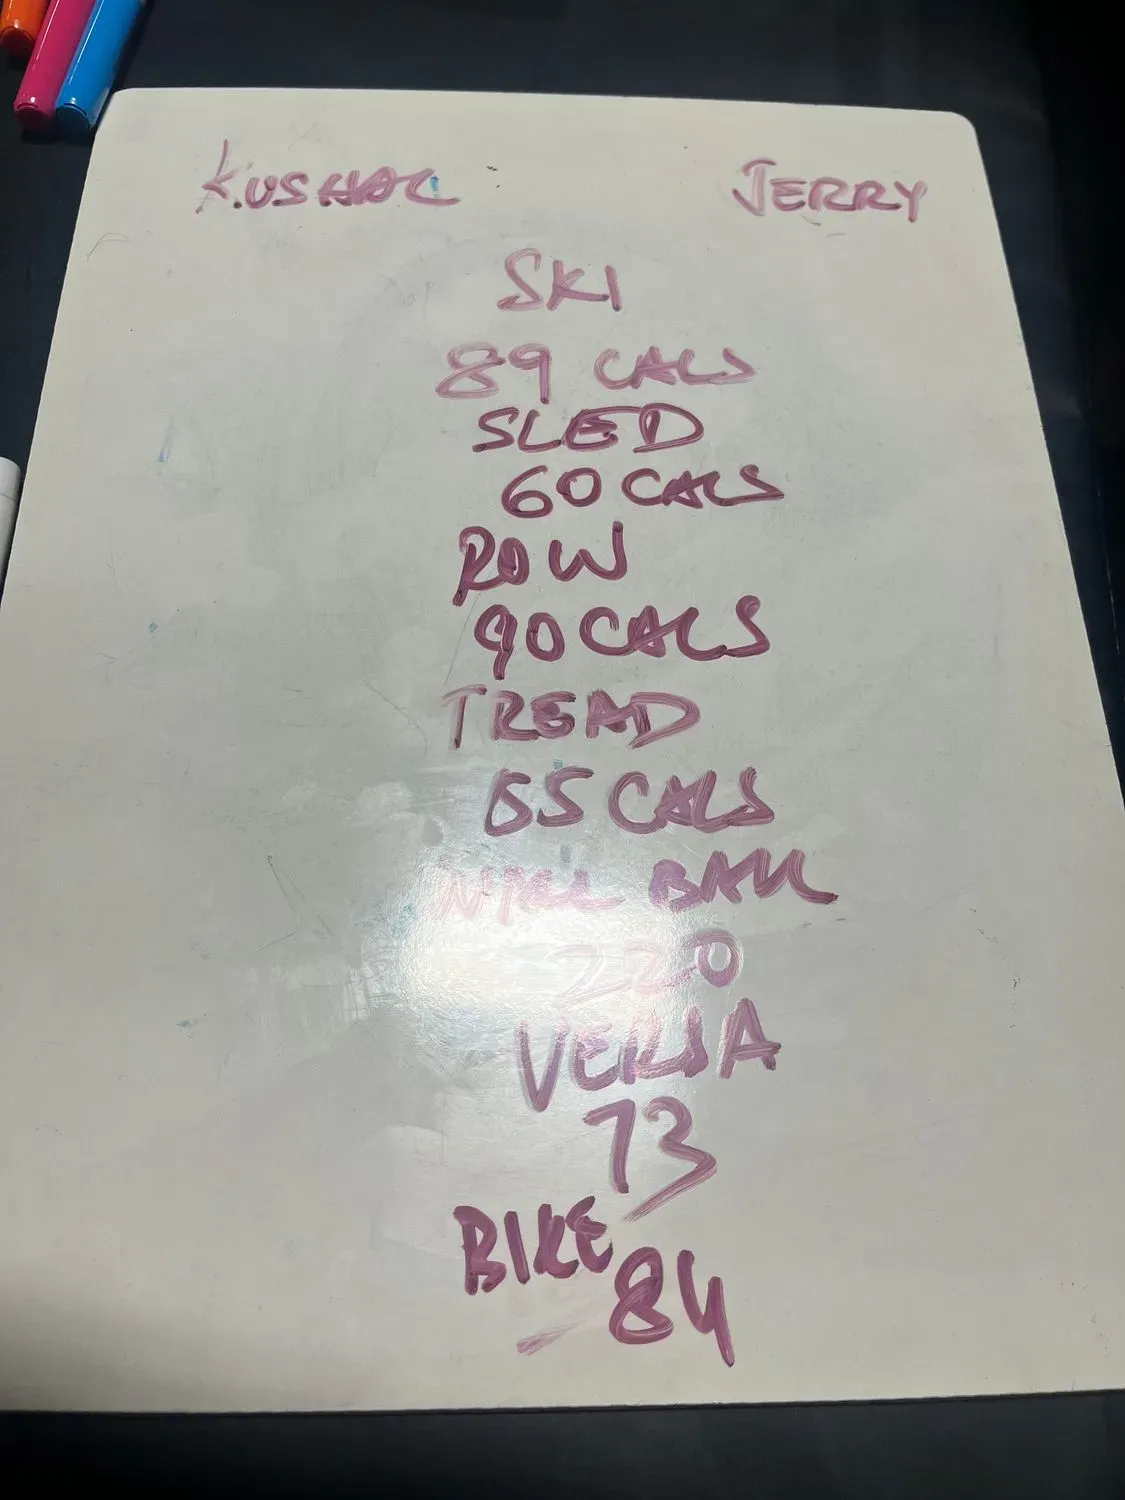 KUSHAL JERRY
SKI
89 CALS
SLED
60 CALS
ROW
90 CALS
TREAD
55 CALS
WALL BALL
220
VERSA
73
BIKE
84